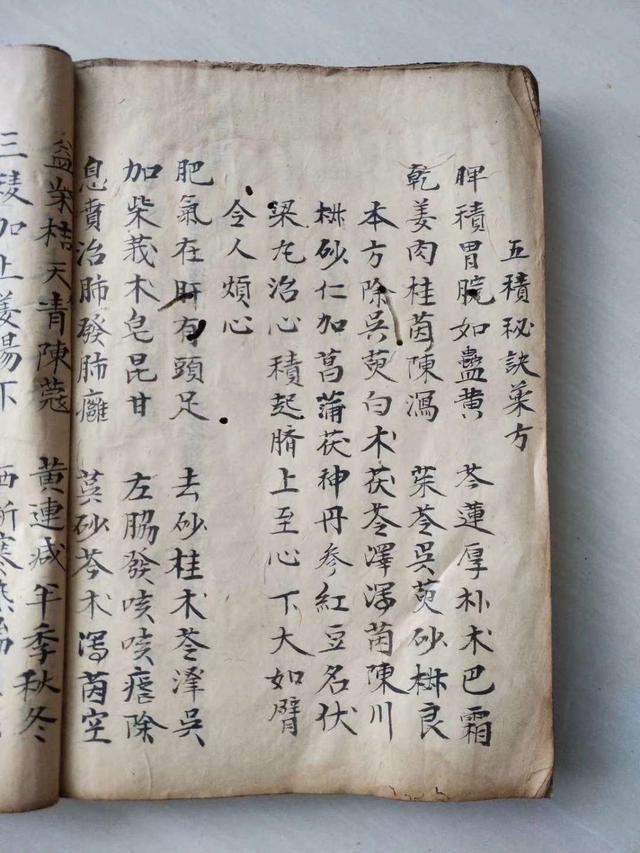 五積秘訣藥方
脾積胃脘如盤黄 芩蓮厚朴术巴霜
乾姜肉桂茵陳瀉 茱苓吳萸砂椒良
本方除吳萸白术茯苓澤瀉茵陳川
椒砂仁加菖蒲茯神丹參紅豆名伏
梁丸治心積起臍上至心下大如臂
令人煩心
肥氣在肝有頭足 去砂桂术苓澤吳
加柴莪术皂昆甘 左脇發咳痎瘧除
息賁治肺發肺癰 萸砂芩术瀉茵空
益柴桔天青陳蔻 黄連减半季秋冬
三稜加上姜湯下